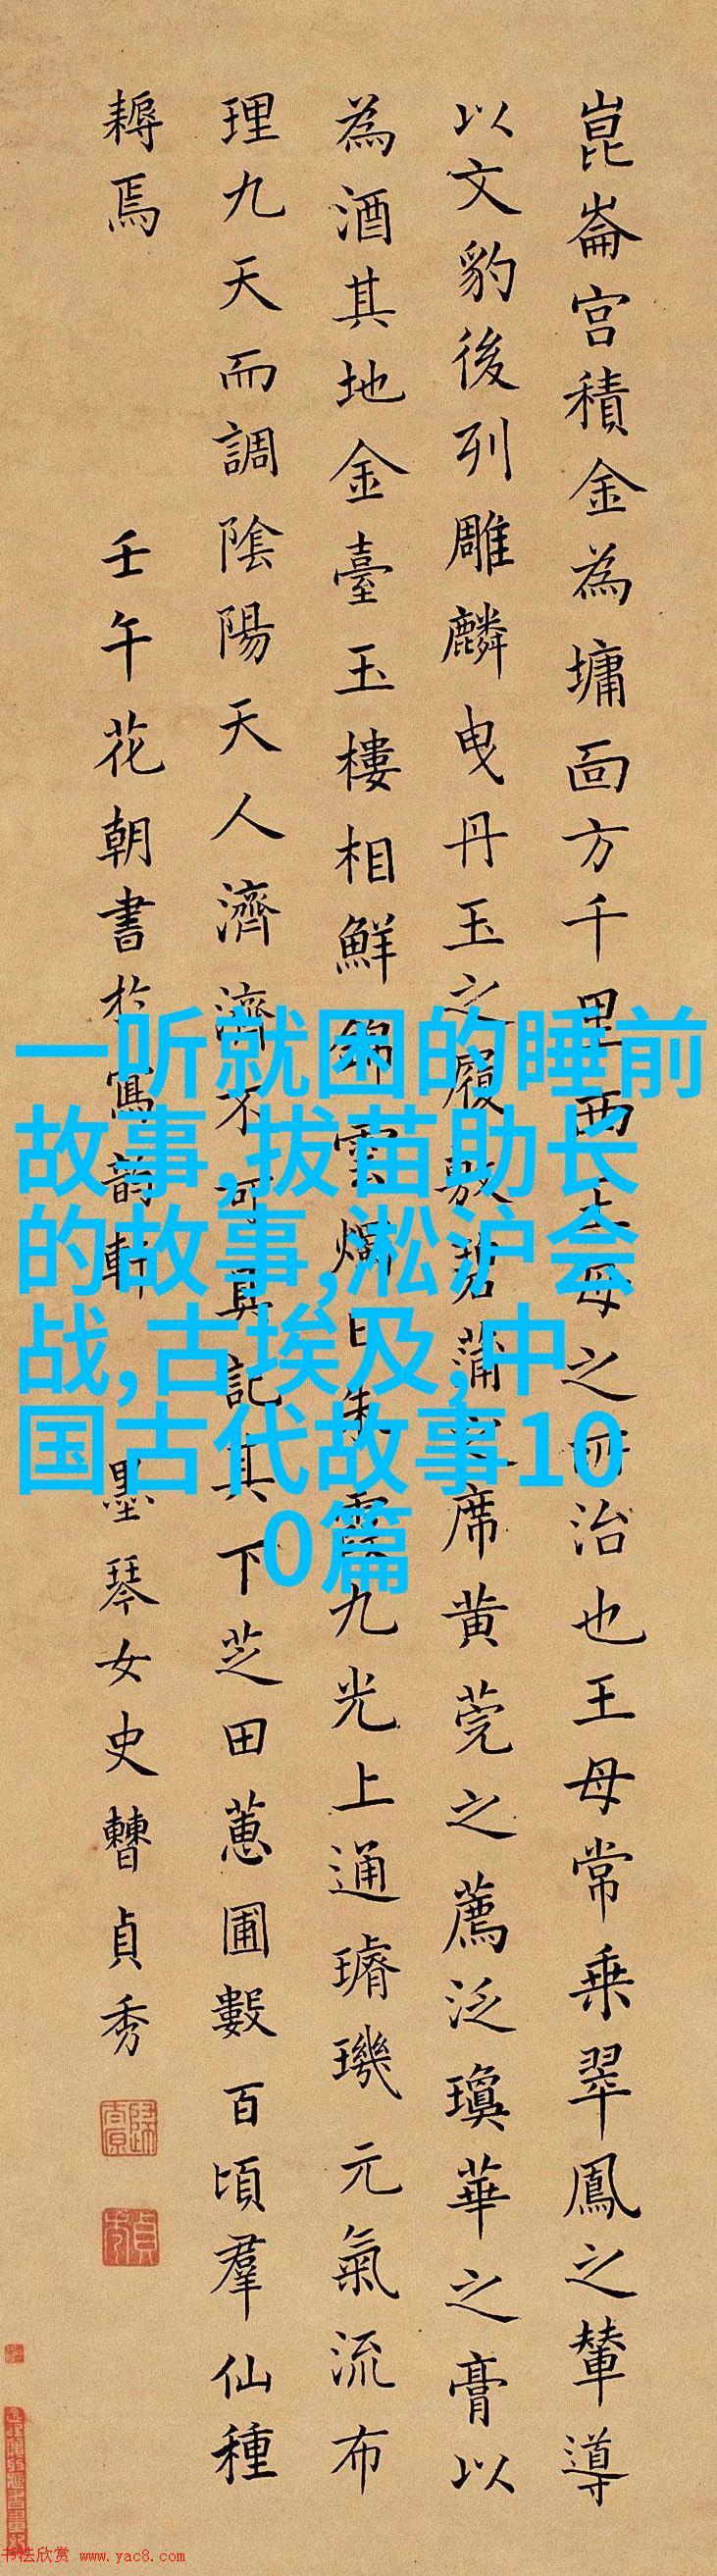 崑崙宮積金為墉面方千里西王母之所治也王母常乗翠鳳之輦導
以文豹後列雕麟曳丹玉之履敷碧蒲之席黄莞之薦泛瓊華之膏以
為酒其地金臺玉樓相鮮錦雲爛日朱霞九光上通璿璣元氣流布
理九天而調陰陽天人濟濟不可具記其下芝田蕙圃數百頃羣仙種
耨焉 壬午花朝書於寫韵軒 墨琴女史曹貞秀
一听就困的睡前
故事,拔苗助长
的故事,淞沪会
战,古埃及,中
国古代故事10
0篇
书法欣赏 www.yac8.com